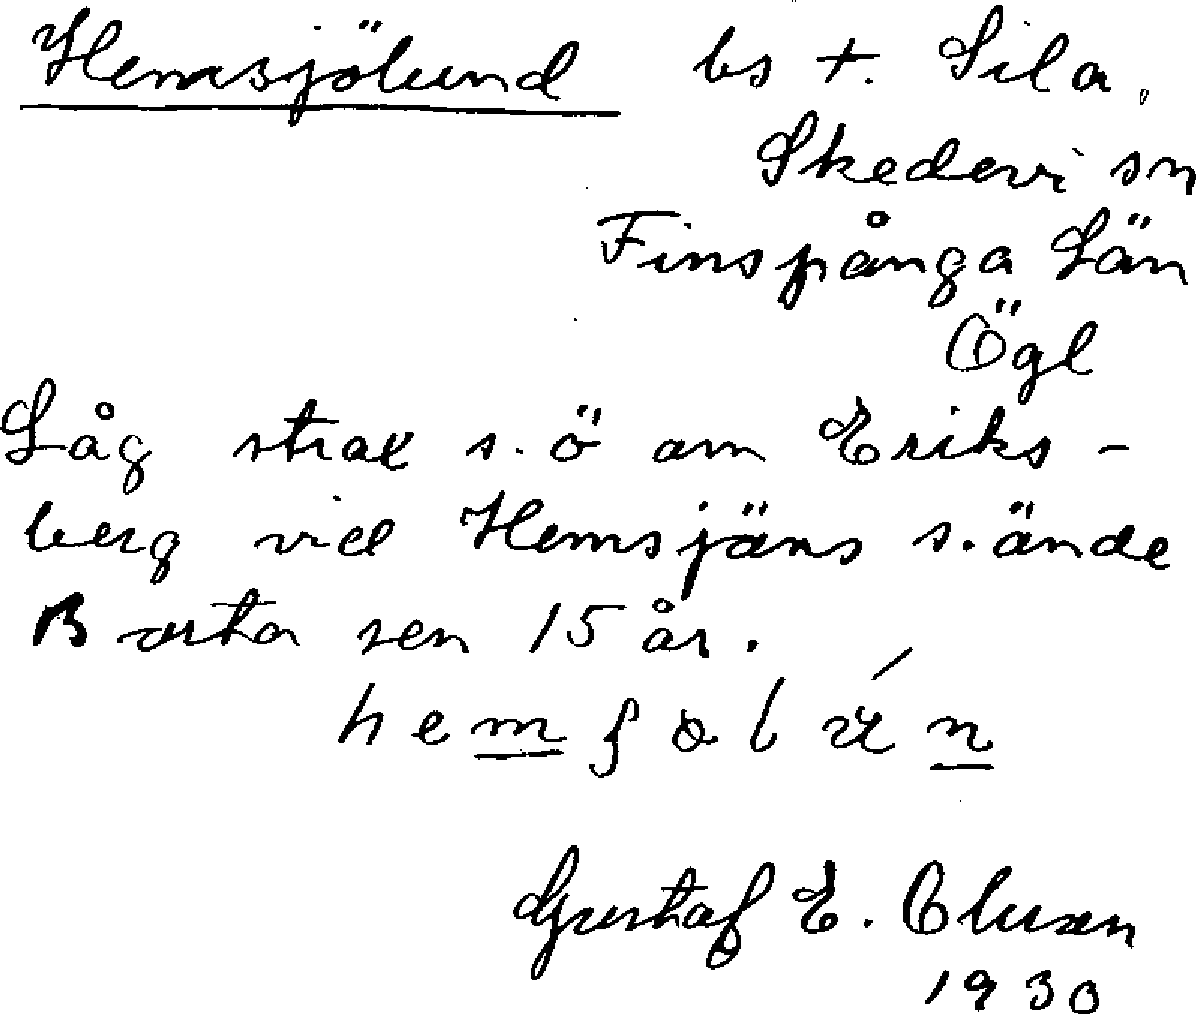 Hemsjölund bs t. Sila,
Skedevi sn
Finspånga Län
Ögl
Låg strax s.ö om Eriks-
berg vid Hemsjöns s. ände
Borta sen 15 år.
Gustaf E. Olsson
1930